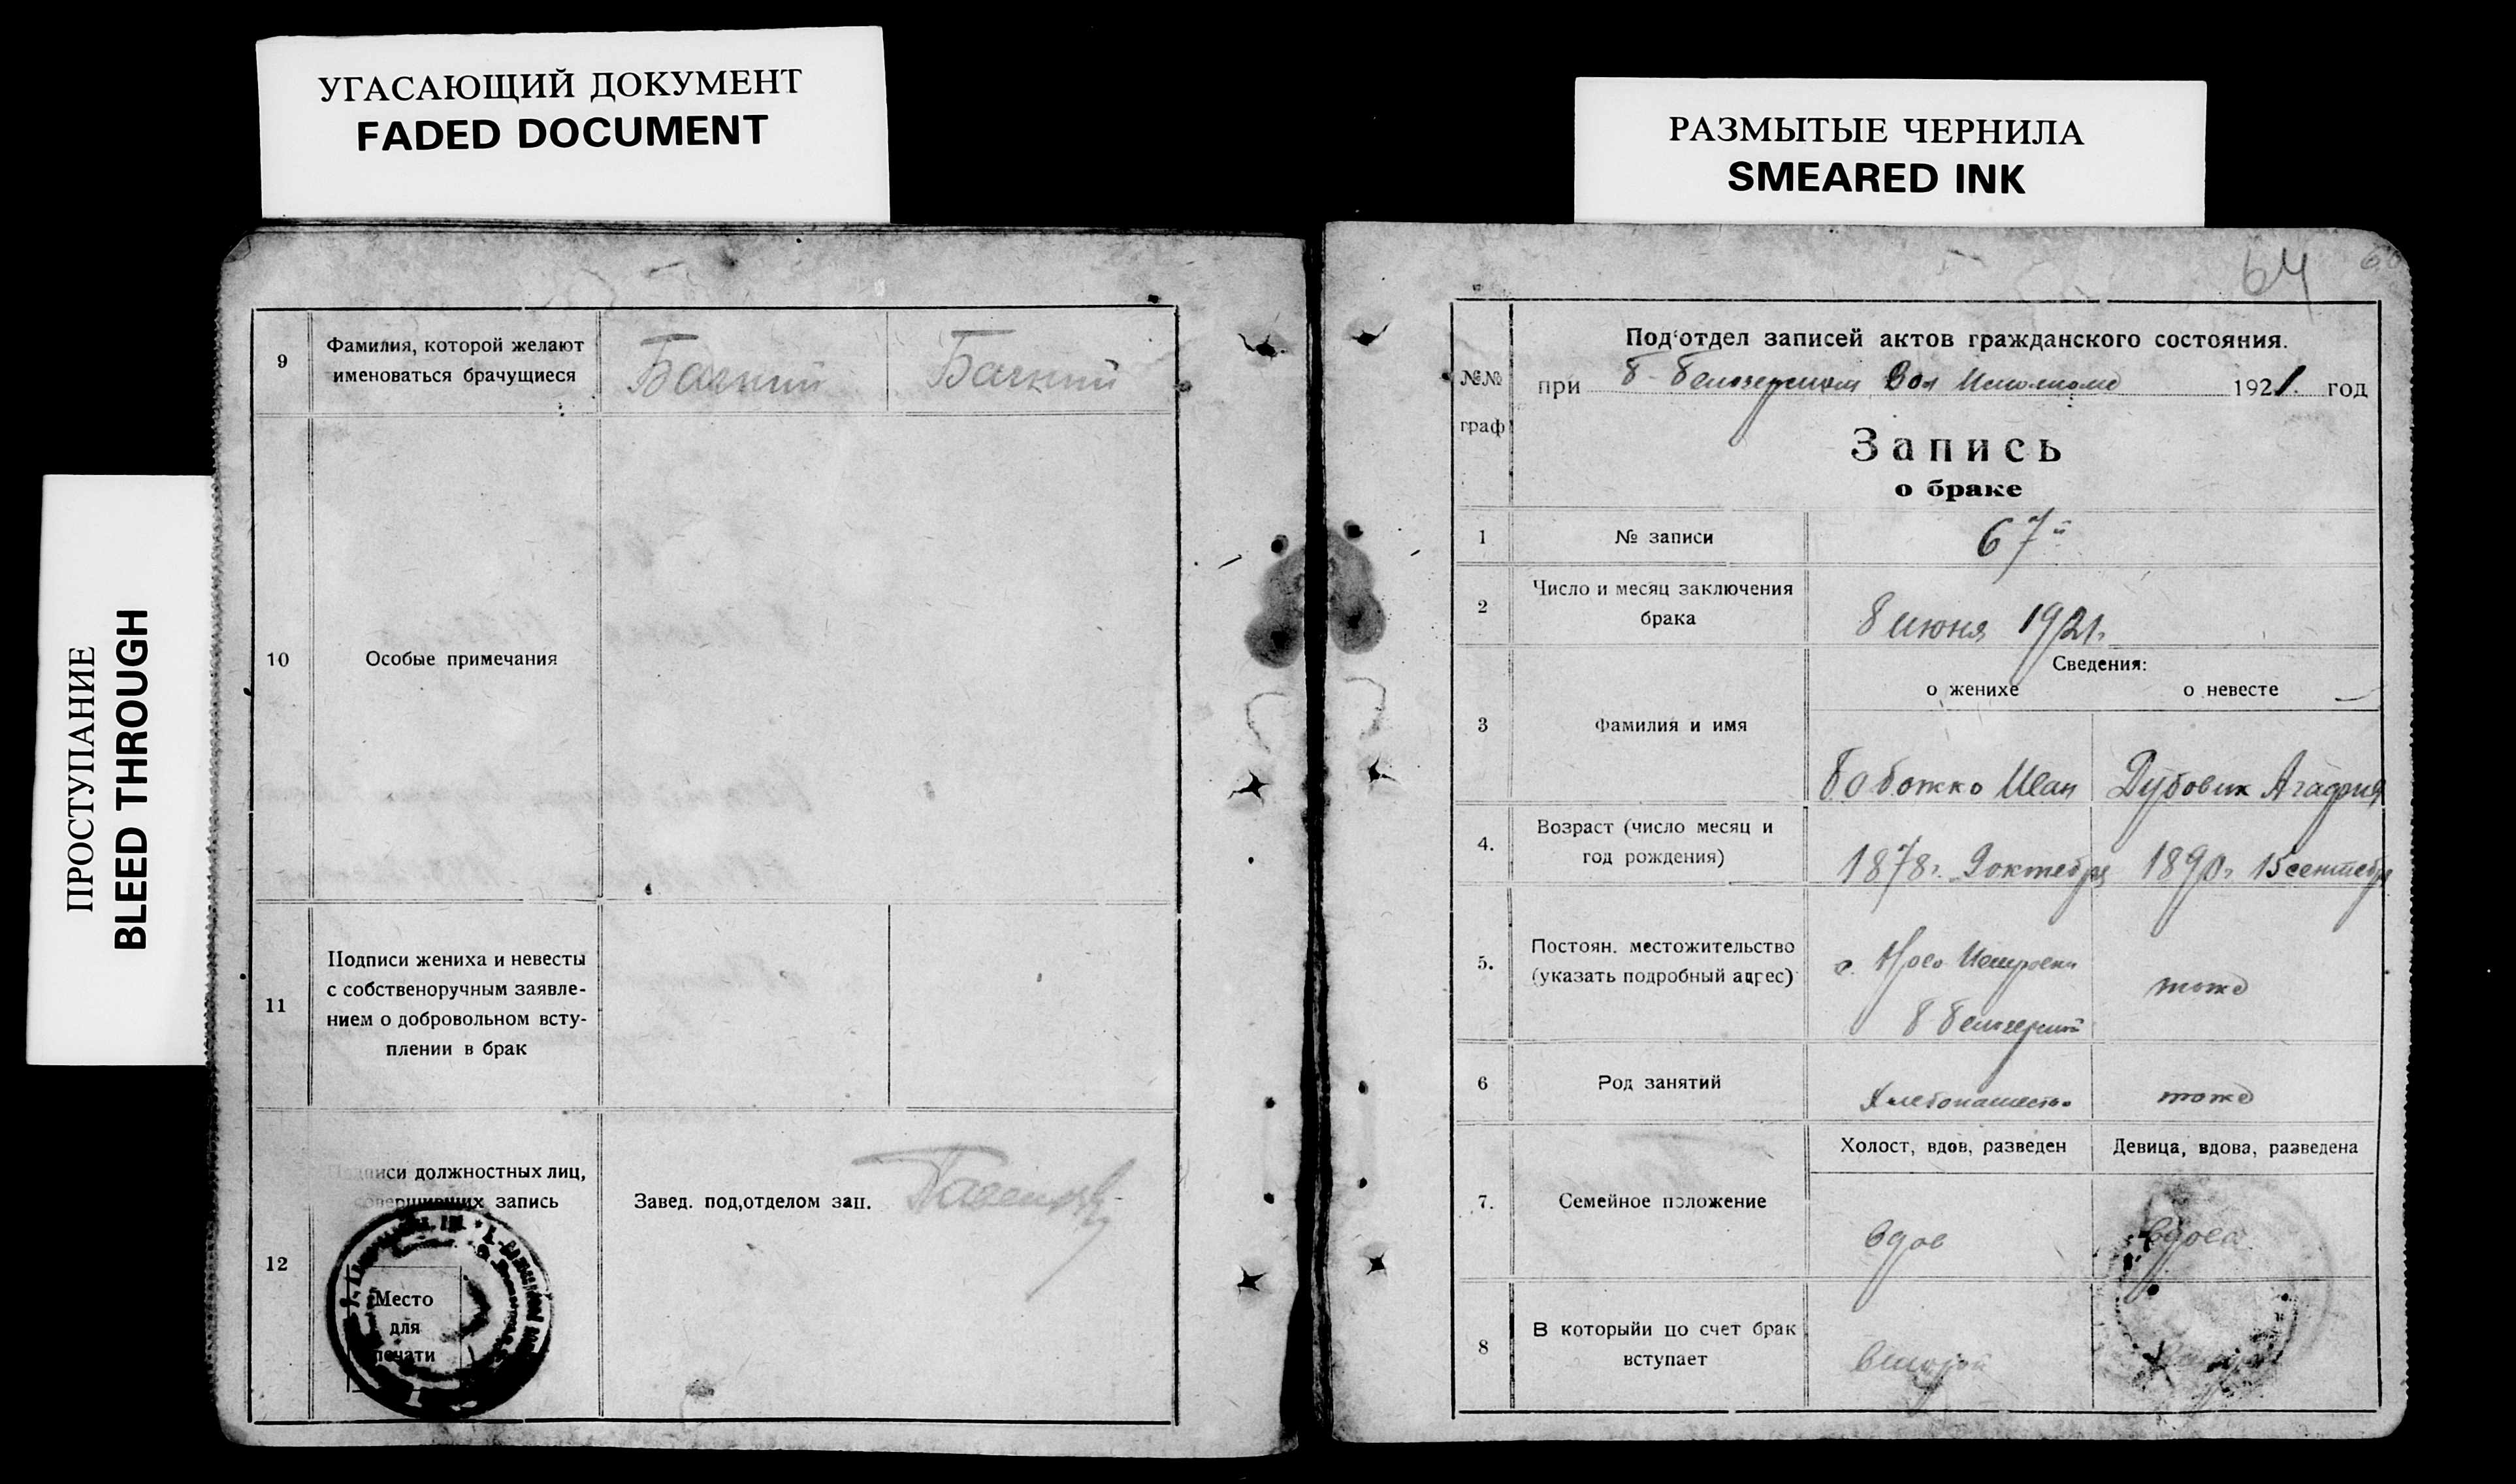 УГАСАЮЩИЙ ДОКУМЕНТ
FADED DOCUMENT
РАЗМЫТЫЕ ЧЕРНИЛА
SMEARED INK
ПРОСТУПАНИЕ
BLEED THROUGH
9
Фамилия, которой желают
именоваться брачущиеся
10
Особые примечания
11
Подписи жениха и невесты
с собственоручным заявле-
нием о добровольном всту-
плении в брак
12
Подписи должностных лиц,
совершивших запись
Завед. под,отделом зап.
Место
для
печати
64
№№
граф
Под‘отдел записей актов гражданского состояния.
при Б-Белозерском Вол Исполкоме 1921. год
Запись
о браке
1
№ записи
67й
2
Число и месяц заключения
брака
8 июня 1921г.
Сведения:
о женихе
о невесте
3
Фамилия и имя
Бобожко Иван
Дубовик Агафия
4.
Возраст (число месяц и
год рождения)
1878г. 9 октебря
1890г. 15 сентебря
5.
Постоян. местожительство
(указать подробный адрес)
с.
Б Белозерки
тоже
6
Род занятий
Хлебопашество
тоже
7.
Семейное положение
Холост, вдов, разведен
Девица, вдова, разведена
вдов
вдова
8
В которыйи по счет брак
вступает
второй